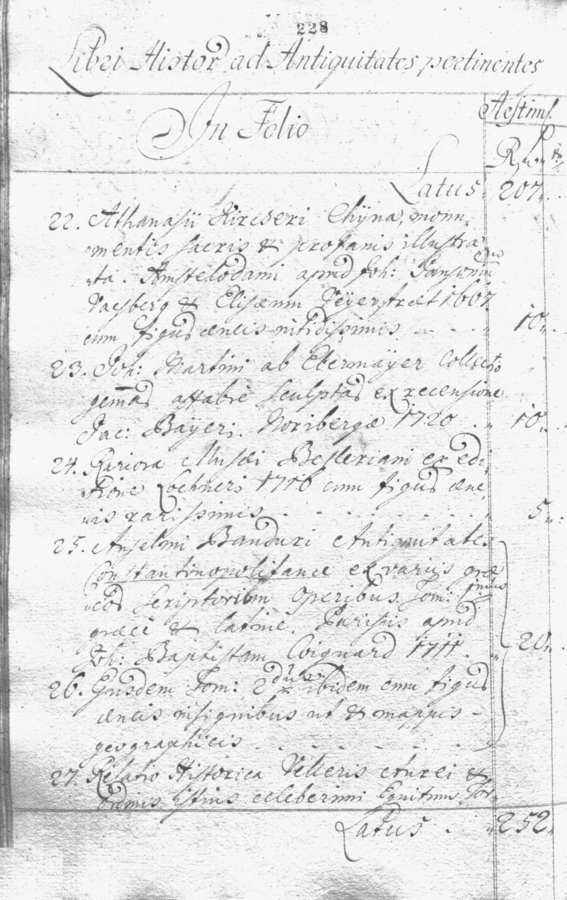 228
Libri Histor. ad Antiquitates pertinentes
Aestim.
In Folio
R.
Latus. 207.
22. Athanasii Kircseri Chyna, monu
mentis sacris & profanis illustra
ta. Amstelodami apud Joh: Jansonium
Vaesberg & Elisaeum Weyerstraet 1667
cum figuris aeneis nitidissimis 10.
23. Joh: Martini ab Ebermayer Collectio
gemmas affabre sculptas ex recensione
Jac: Bayeri. Noribergae 1720 10.
24. Rariora Musei Besleriani ex edi
tione Lochneri 1716 cum figuris aene
is rarissimis 5.
25. Anselmi Banduri Antiquitates
Constantinopolitanae ex variis grae
cos Scriptorum Operibus. Tom: primus
graece & latine. Parisiis apud
Joh: Baptistam Coignard 1711. 20.
26. Ejusdem Tom: 2dus ibidem cum figuris
aeneis insignibus ut & mappis
geographicis
27. Relatio Historica Velleris Aurei &
istius celeberrimi Equitum
Latus 252.